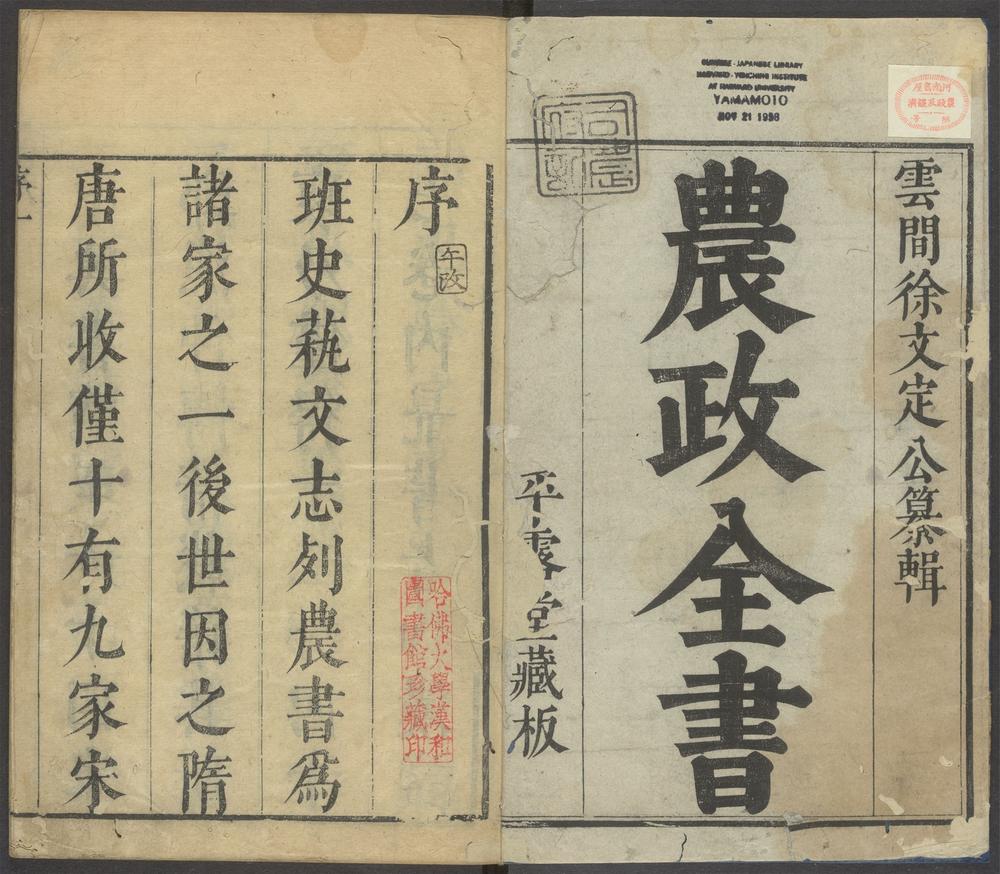 雲間徐文定公纂輯
農政全書
平露堂藏板
CHINESE-JAPANESE LIBRARY
HARVARD-YENCHING INSTITUTE
AT HARVARD UNIVERSITY
YAMAMOTO
NOV 21 1938
序
班史蓺文志列農書爲
諸家之一後世因之隋
唐所收僅十有九家宋
哈佛大學漢和
圖書館珍藏印
序一